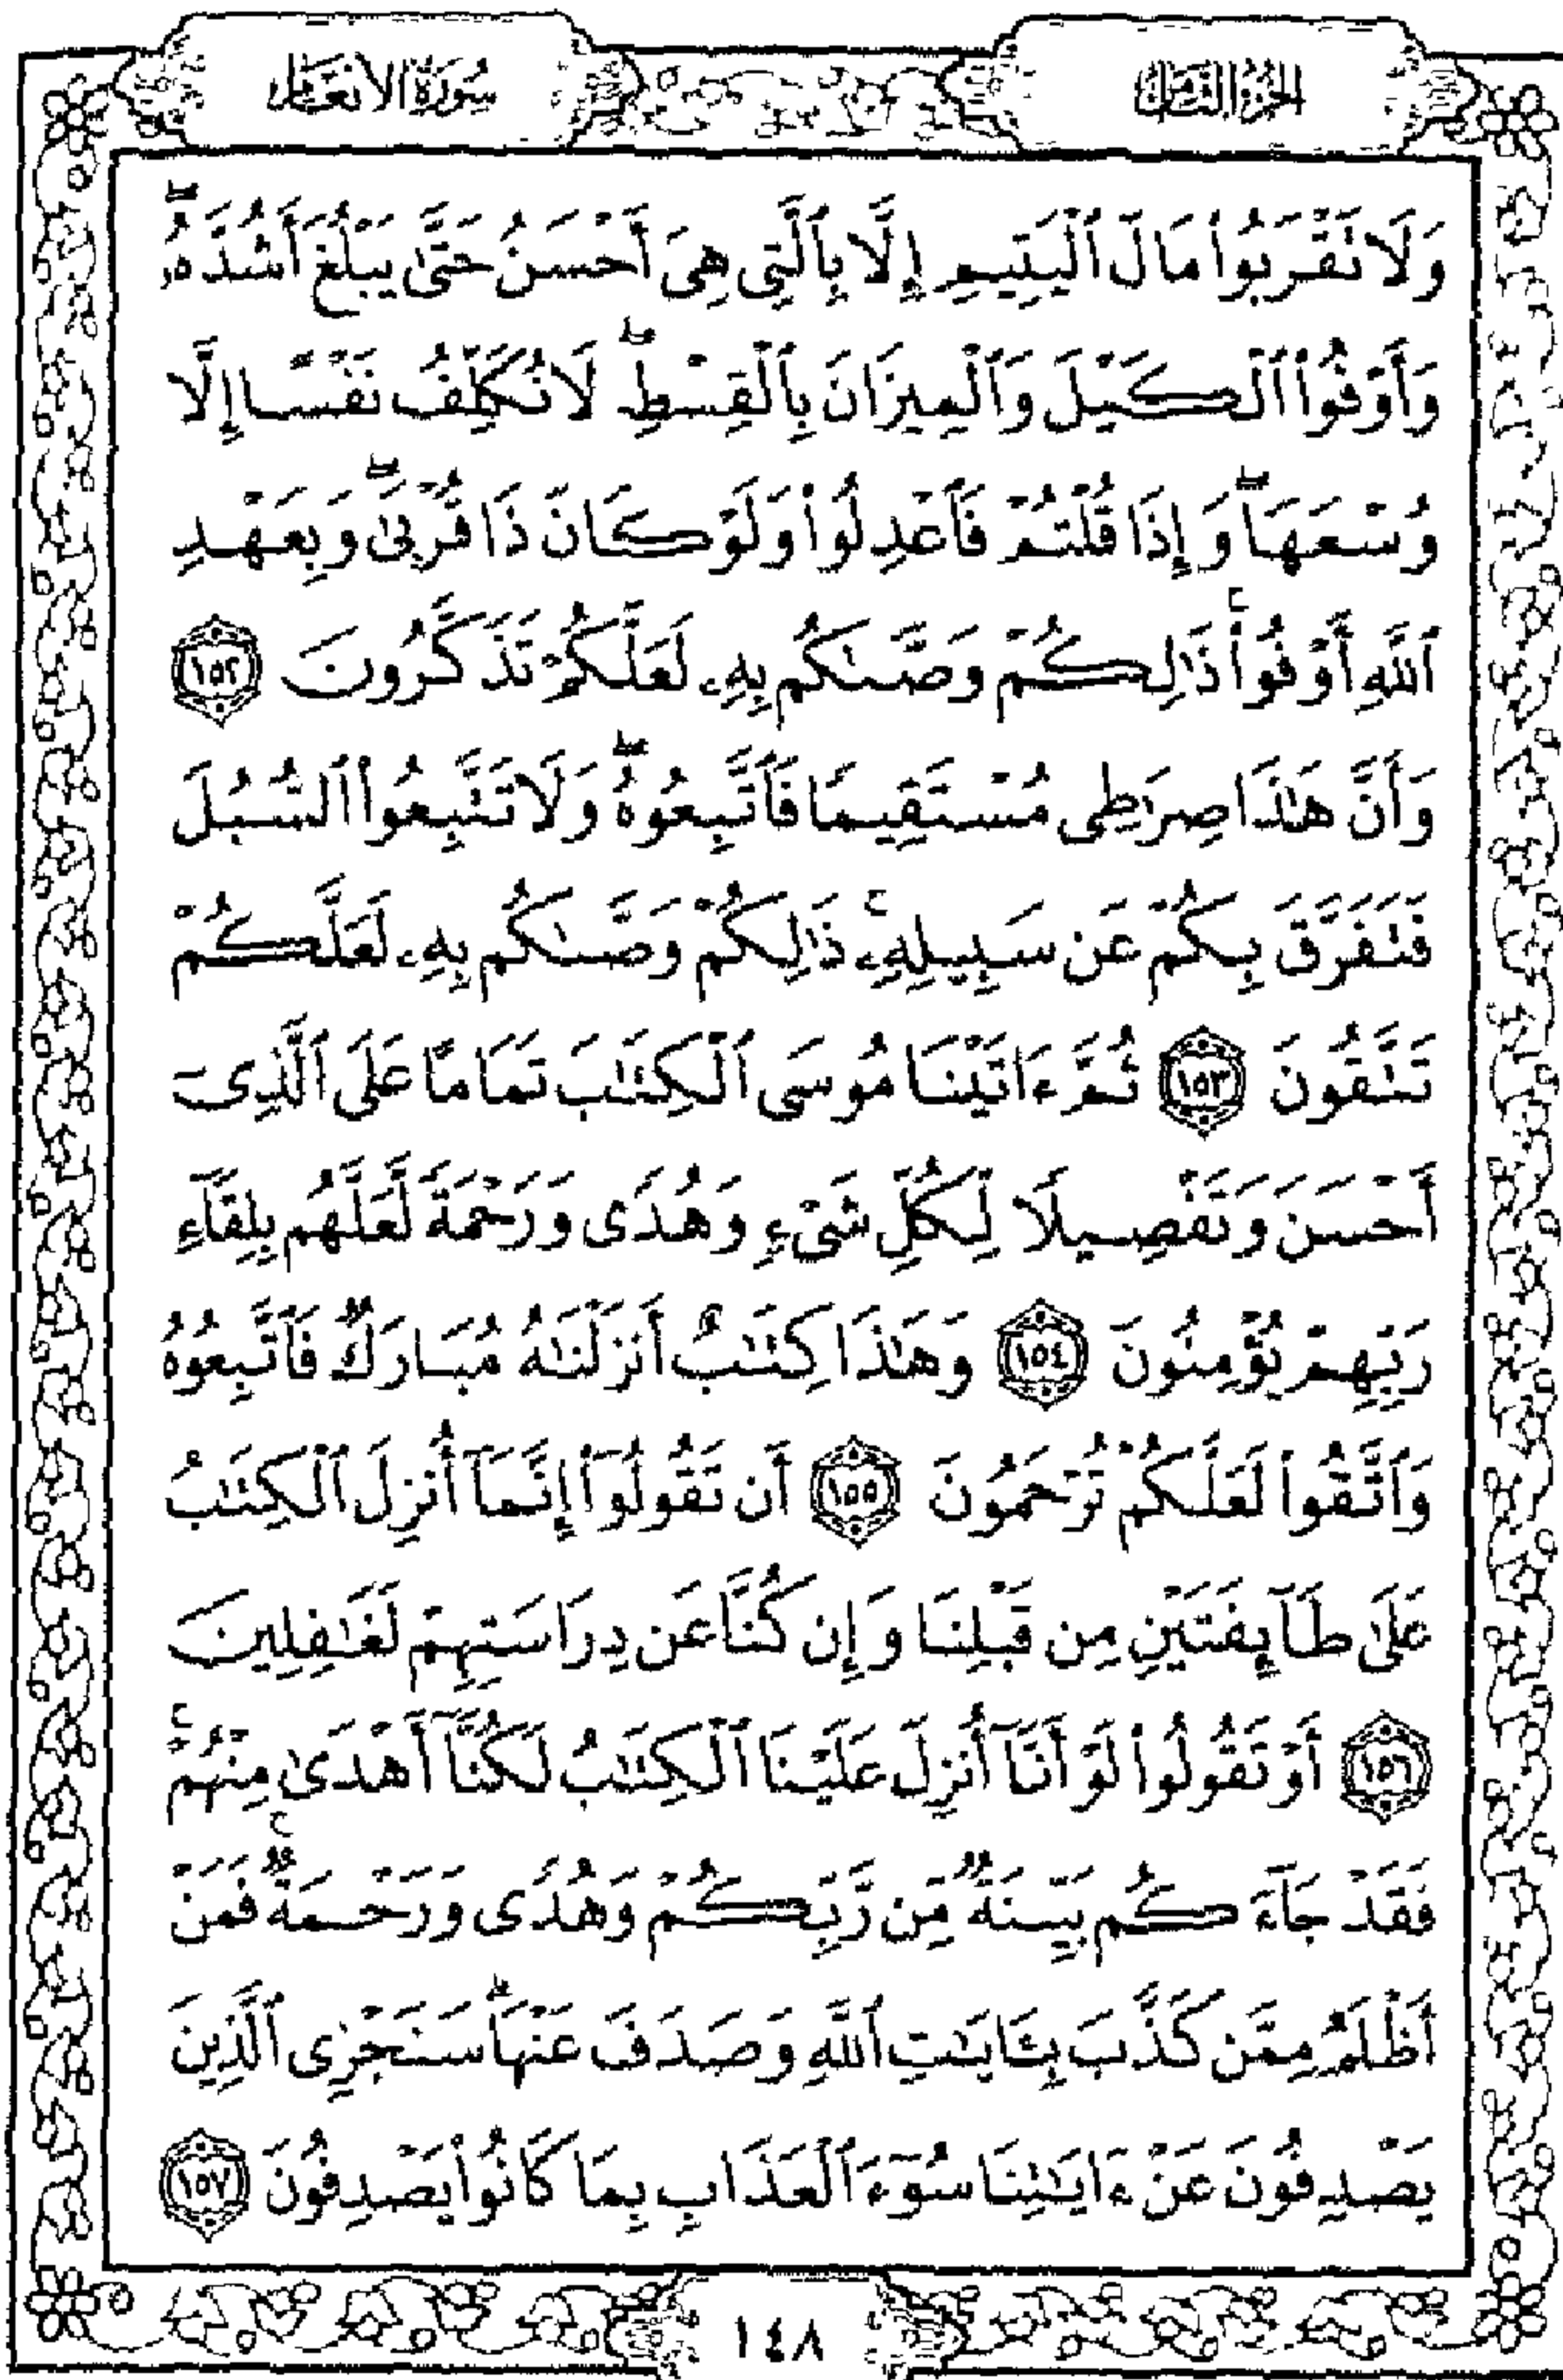 الجزء الثامن
سورة الأنعام
وَلَا تَقْرَبُوا۟ مَالَ ٱلْيَتِيمِ إِلَّا بِٱلَّتِى هِىَ أَحْسَنُ حَتَّىٰ يَبْلُغَ أَشُدَّهُۥۖ
وَأَوْفُوا۟ ٱلْكَيْلَ وَٱلْمِيزَانَ بِٱلْقِسْطِۖ لَا نُكَلِّفُ نَفْسًا إِلَّا
وُسْعَهَاۖ وَإِذَا قُلْتُمْ فَٱعْدِلُوا۟ وَلَوْ كَانَ ذَا قُرْبَىٰۖ وَبِعَهْدِ
ٱللَّهِ أَوْفُوا۟ۚ ذَٰلِكُمْ وَصَّىٰكُم بِهِۦ لَعَلَّكُمْ تَذَكَّرُونَ ١٥٢
وَأَنَّ هَٰذَا صِرَٰطِى مُسْتَقِيمًا فَٱتَّبِعُوهُۖ وَلَا تَتَّبِعُوا۟ ٱلسُّبُلَ
فَتَفَرَّقَ بِكُمْ عَن سَبِيلِهِۦۚ ذَٰلِكُمْ وَصَّىٰكُم بِهِۦ لَعَلَّكُمْ
تَتَّقُونَ ١٥٣ ثُمَّ ءَاتَيْنَا مُوسَى ٱلْكِتَٰبَ تَمَامًا عَلَى ٱلَّذِىٓ
أَحْسَنَ وَتَفْصِيلًا لِّكُلِّ شَىْءٍ وَهُدًى وَرَحْمَةً لَّعَلَّهُم بِلِقَآءِ
رَبِّهِمْ يُؤْمِنُونَ ١٥٤ وَهَٰذَا كِتَٰبٌ أَنزَلْنَٰهُ مُبَارَكٌ فَٱتَّبِعُوهُ
وَٱتَّقُوا۟ لَعَلَّكُمْ تُرْحَمُونَ ١٥٥ أَن تَقُولُوٓا۟ إِنَّمَآ أُنزِلَ ٱلْكِتَٰبُ
عَلَىٰ طَآئِفَتَيْنِ مِن قَبْلِنَا وَإِن كُنَّا عَن دِرَاسَتِهِمْ لَغَٰفِلِينَ
١٥٦ أَوْ تَقُولُوا۟ لَوْ أَنَّآ أُنزِلَ عَلَيْنَا ٱلْكِتَٰبُ لَكُنَّآ أَهْدَىٰ مِنْهُمْۚ
فَقَدْ جَآءَكُم بَيِّنَةٌ مِّن رَّبِّكُمْ وَهُدًى وَرَحْمَةٌۚ فَمَنْ
أَظْلَمُ مِمَّن كَذَّبَ بِـَٔايَٰتِ ٱللَّهِ وَصَدَفَ عَنْهَاۗ سَنَجْزِى ٱلَّذِينَ
يَصْدِفُونَ عَنْ ءَايَٰتِنَا سُوٓءَ ٱلْعَذَابِ بِمَا كَانُوا۟ يَصْدِفُونَ ١٥٧
١٤٨